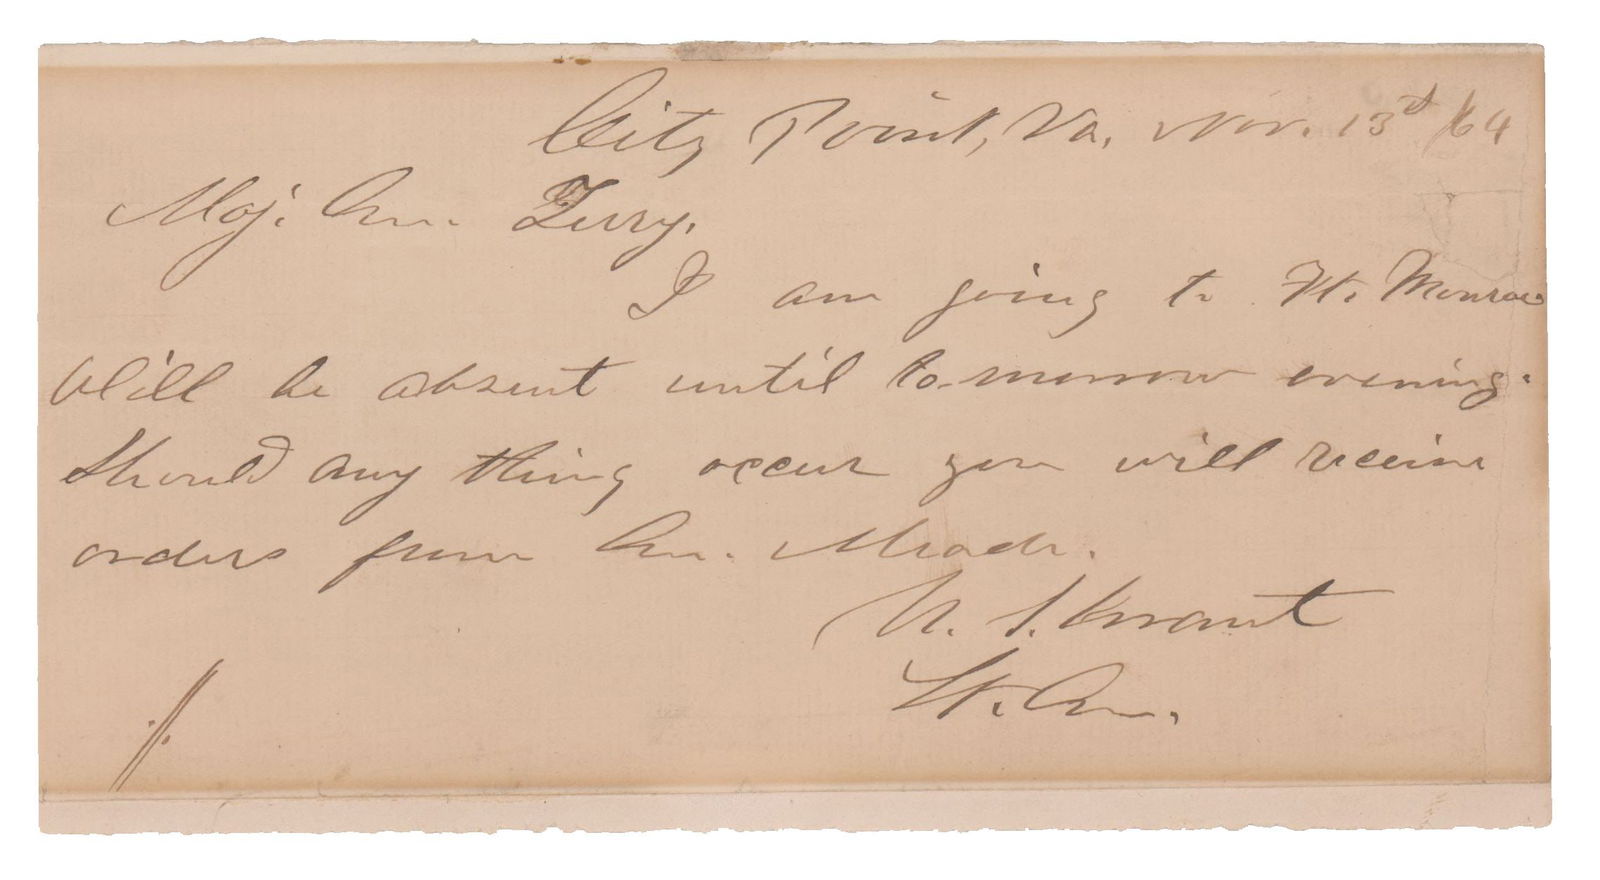 City Point, Va, Nov. 13th /64
Maj. Gen. Terry.
I am going to Ft. Monroe
Will be absent until to-morrow evening.
Should any thing occur you will receive
orders from Gen. Meade.
U. S. Grant
Lt. Gen.